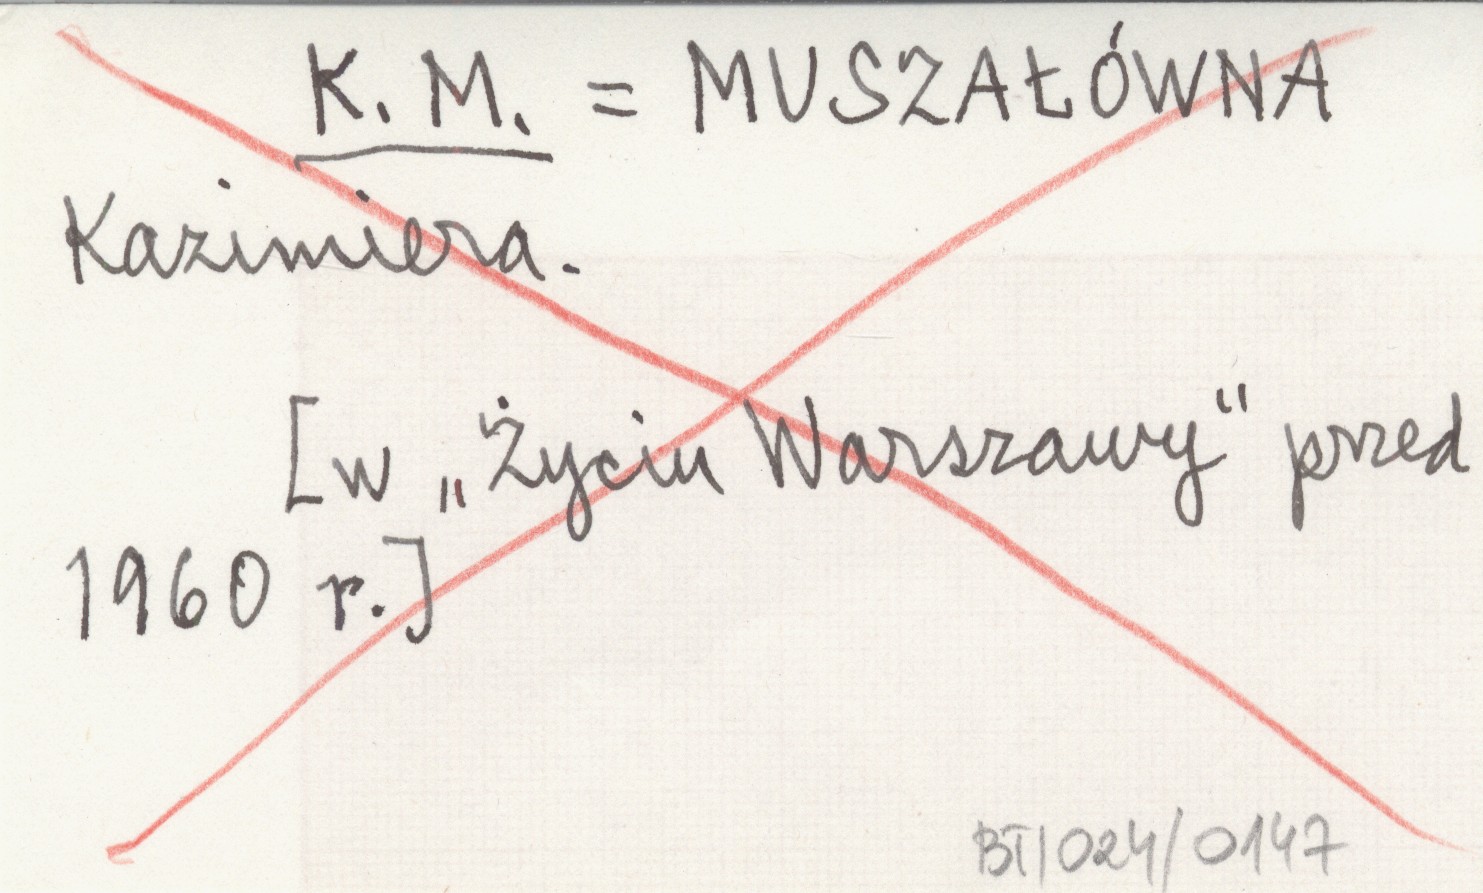 K. M. = MUSZAŁÓWNA
Kazimiera.
[w „Życiu Warszawy" przed
1960 r.]
BT/024/0147